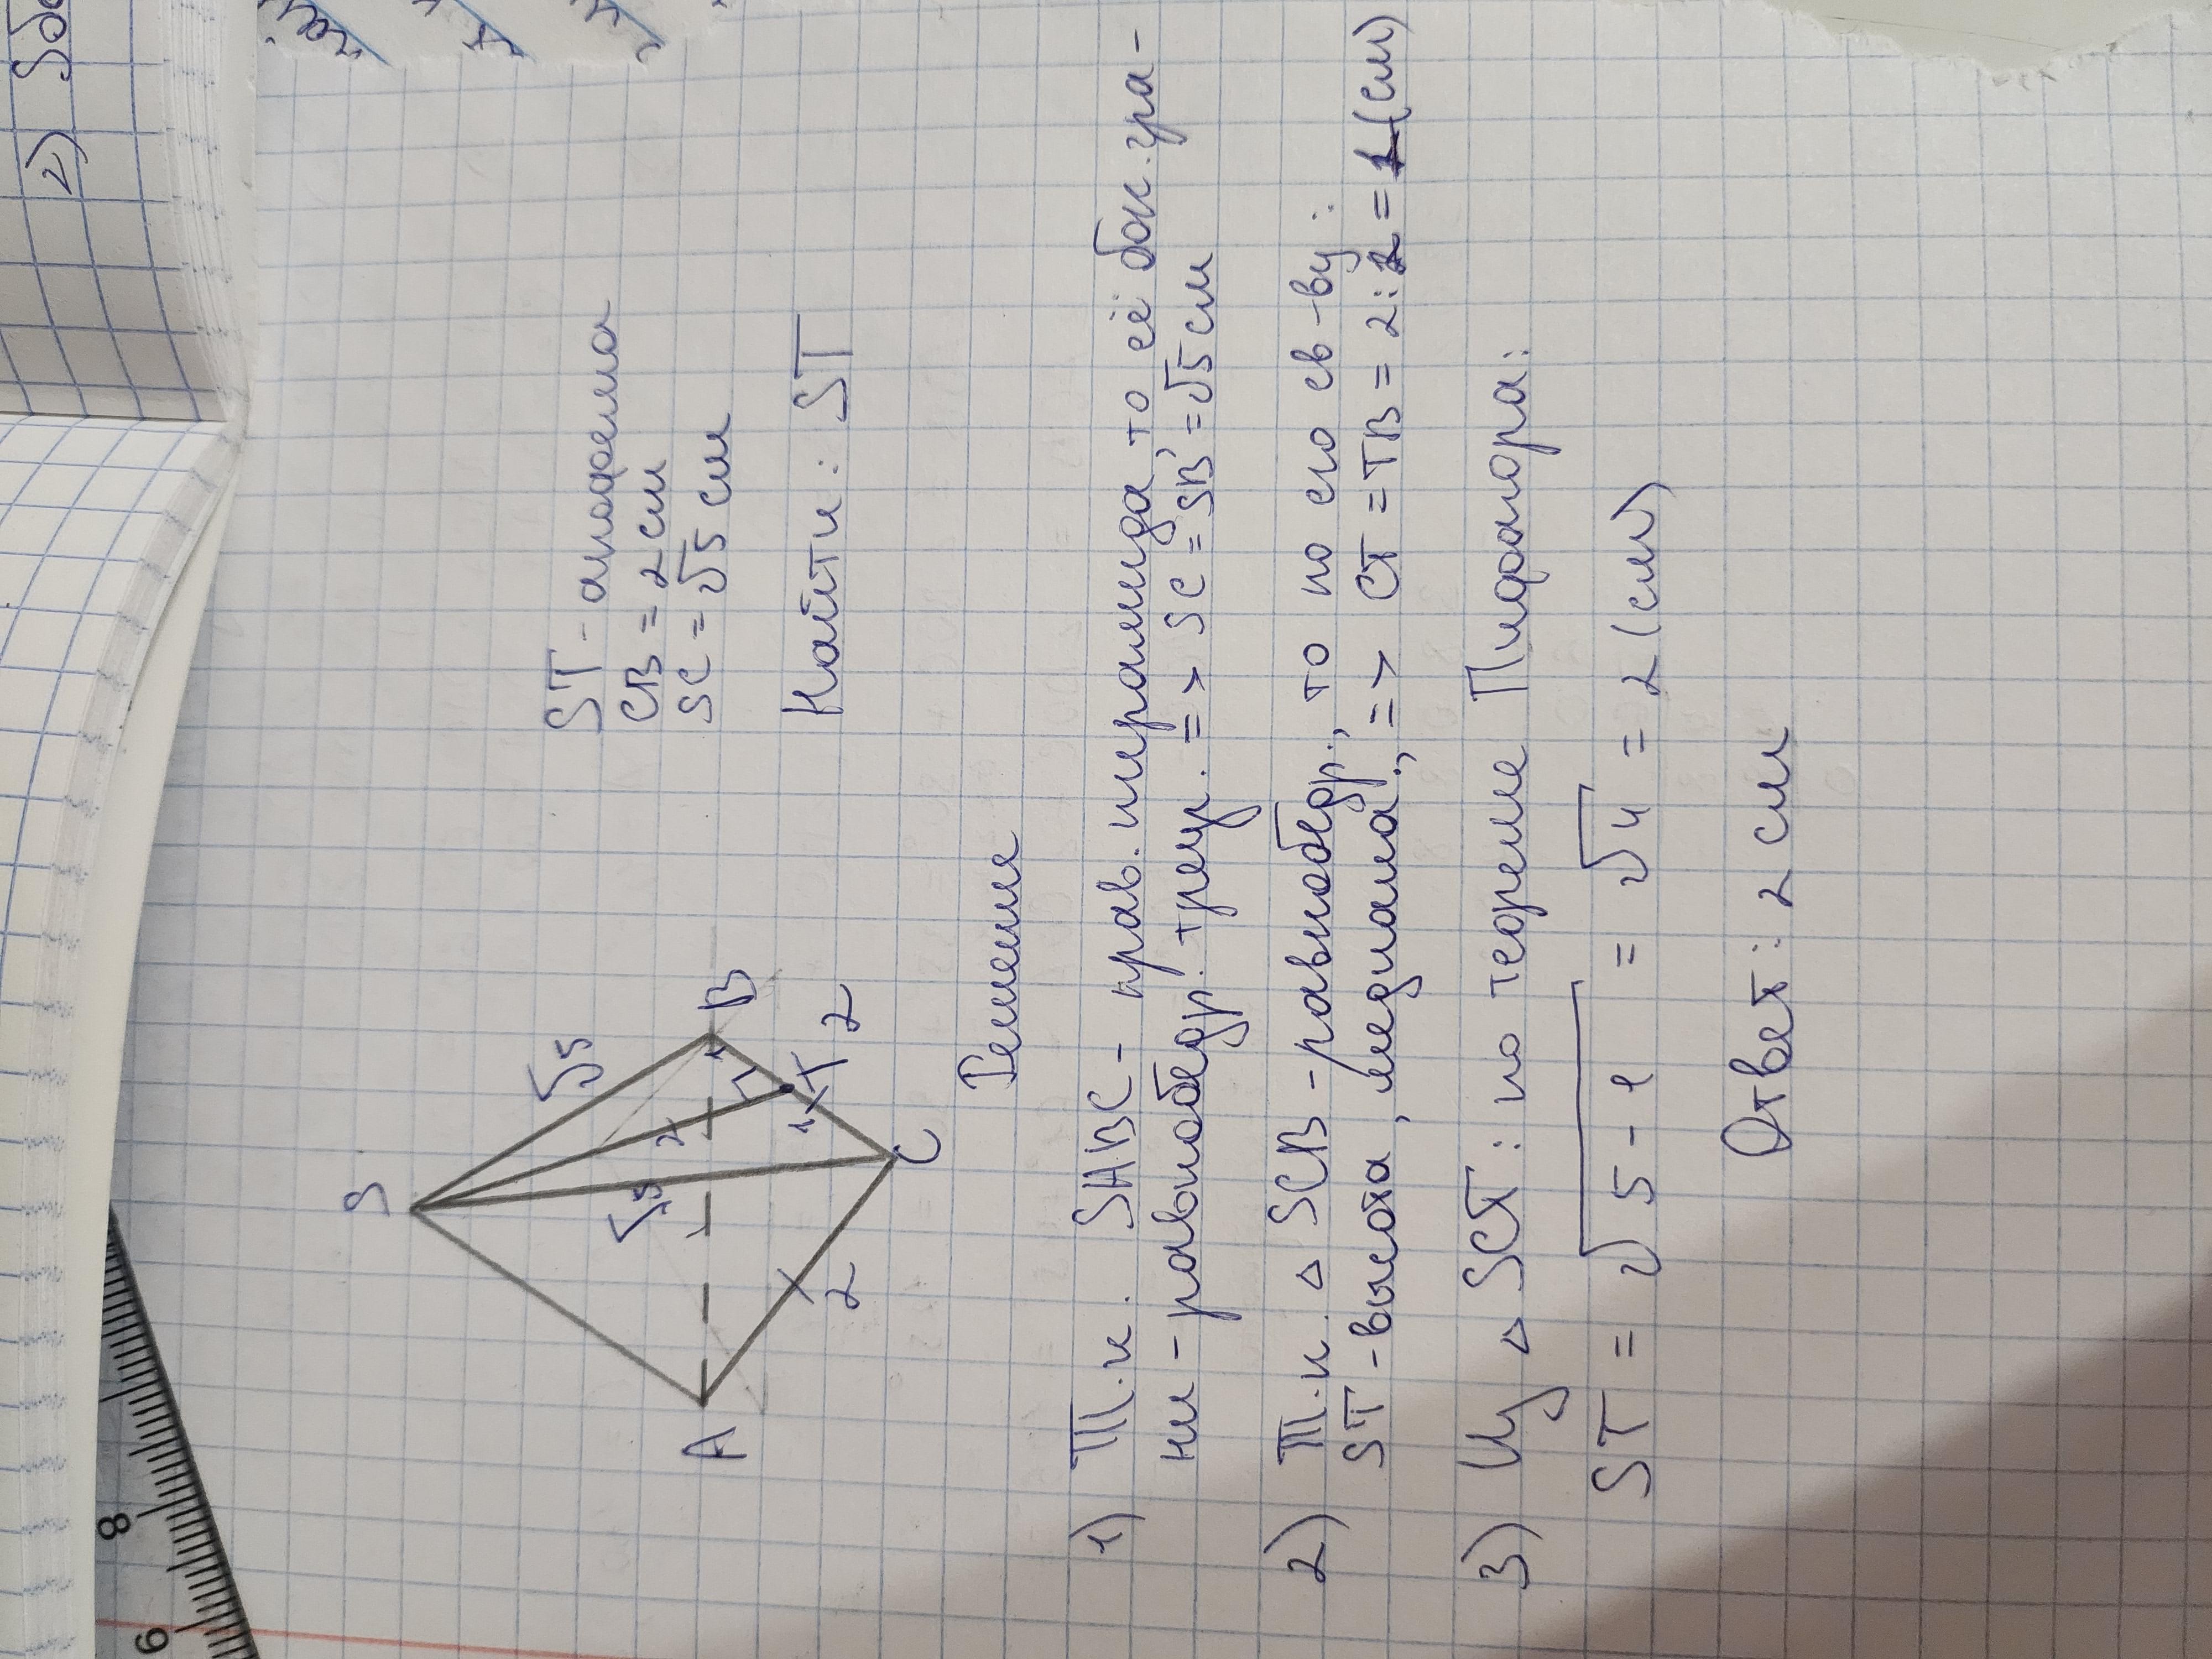 2)
S
√5
√5
2
1
B
A
T
1
2
2
C
ST - апофема
CB = 2 см
SC = √5 см
Найти: ST
Решение
1) Т.к. SABC - прав. пирамида, то её бок. гра-
ни - равнобедр. треуг. => SC = SB = √5 см
2) Т.к. △ SCB - равнобедр., то по его св-ву:
ST - высота, медиана, => CT = TB = 2:2 = 1 (см)
3) Из △ SCT: по теореме Пифагора:
ST = √5 - 1 = √4 = 2 (см)
Ответ: 2 см
8
9